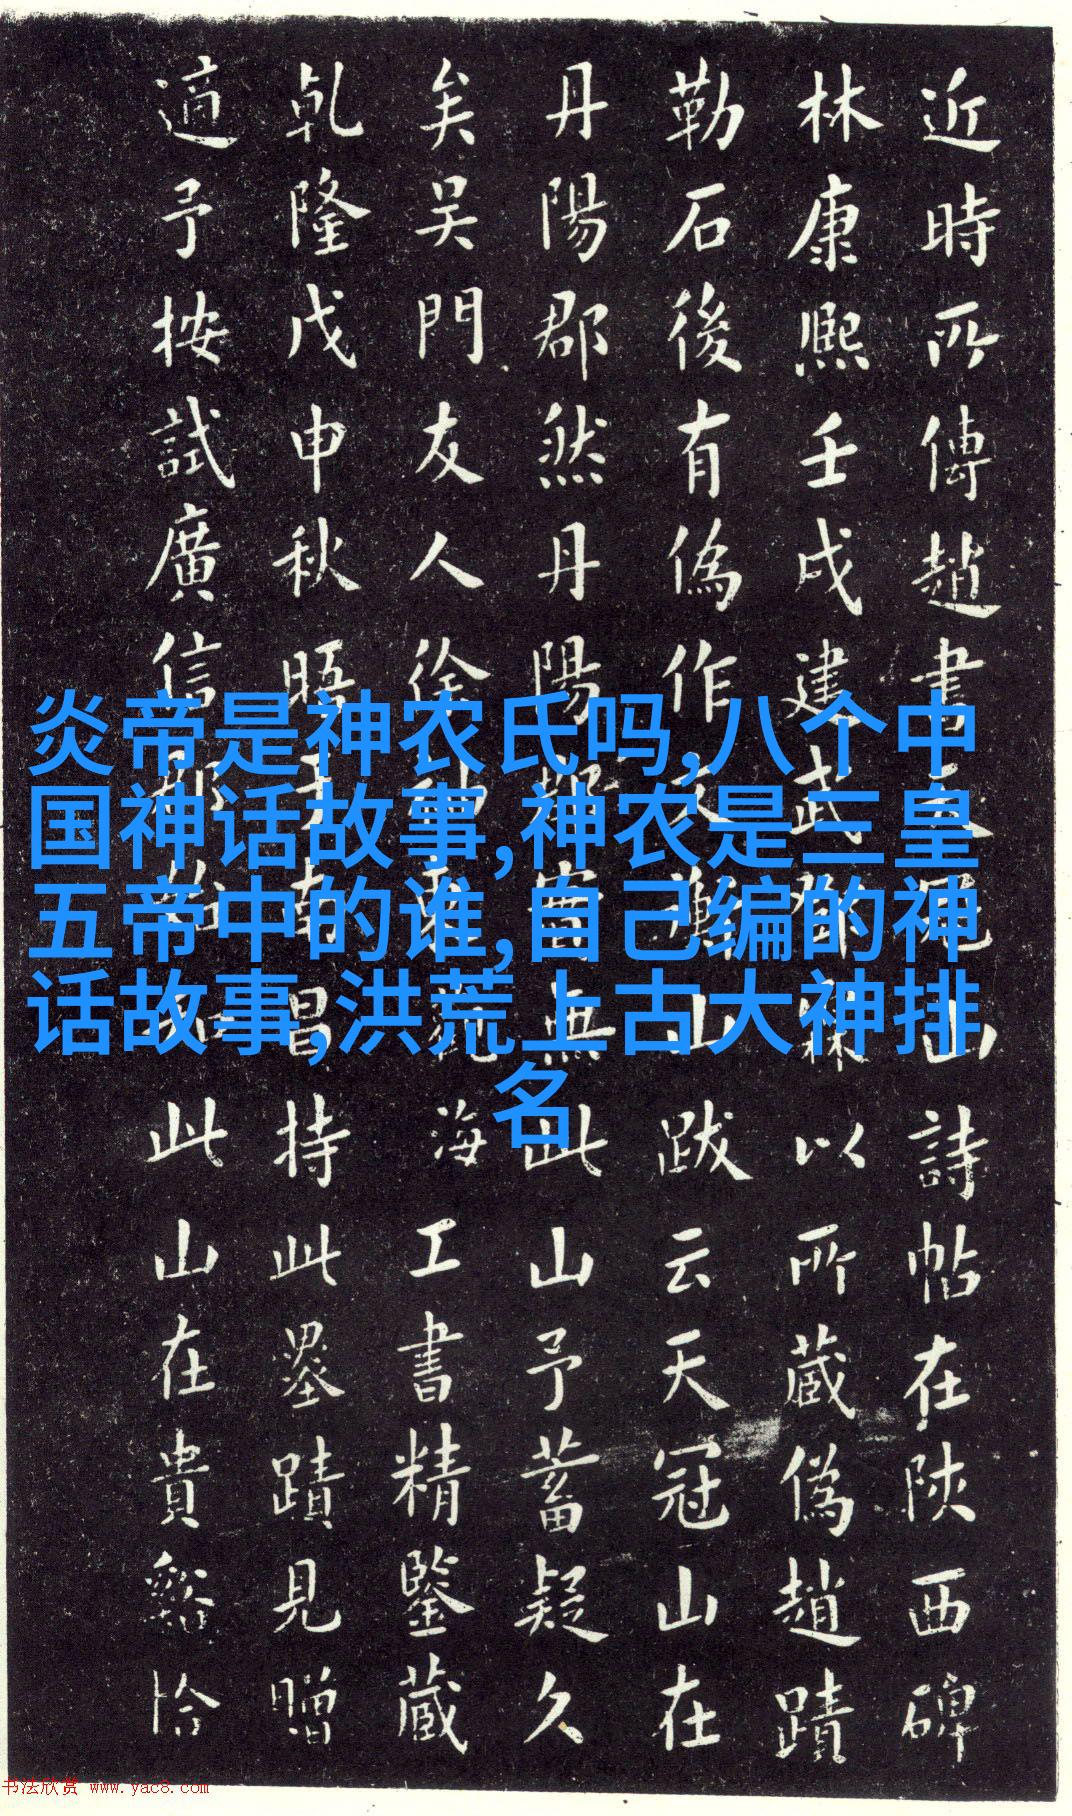 近時所傳趙書山詩帖在陝西碑
林康熙壬戌建武霖以所藏偽趙蹟
勒石後有偽作文衡山跋云天冠山在
丹陽郡然丹陽郡無此山予蓄疑久
矣吳門友人徐海工書精鑒藏
乾隆戊申秋晤于南昌持此墨蹟見贈
適予按試廣信郡此山在貴谿恰
炎帝是神农氏吗,八个中
国神话故事,神农是三皇
五帝中的谁,自己编的神
话故事,洪荒上古大神排
名
书法欣赏 www.yac8.com